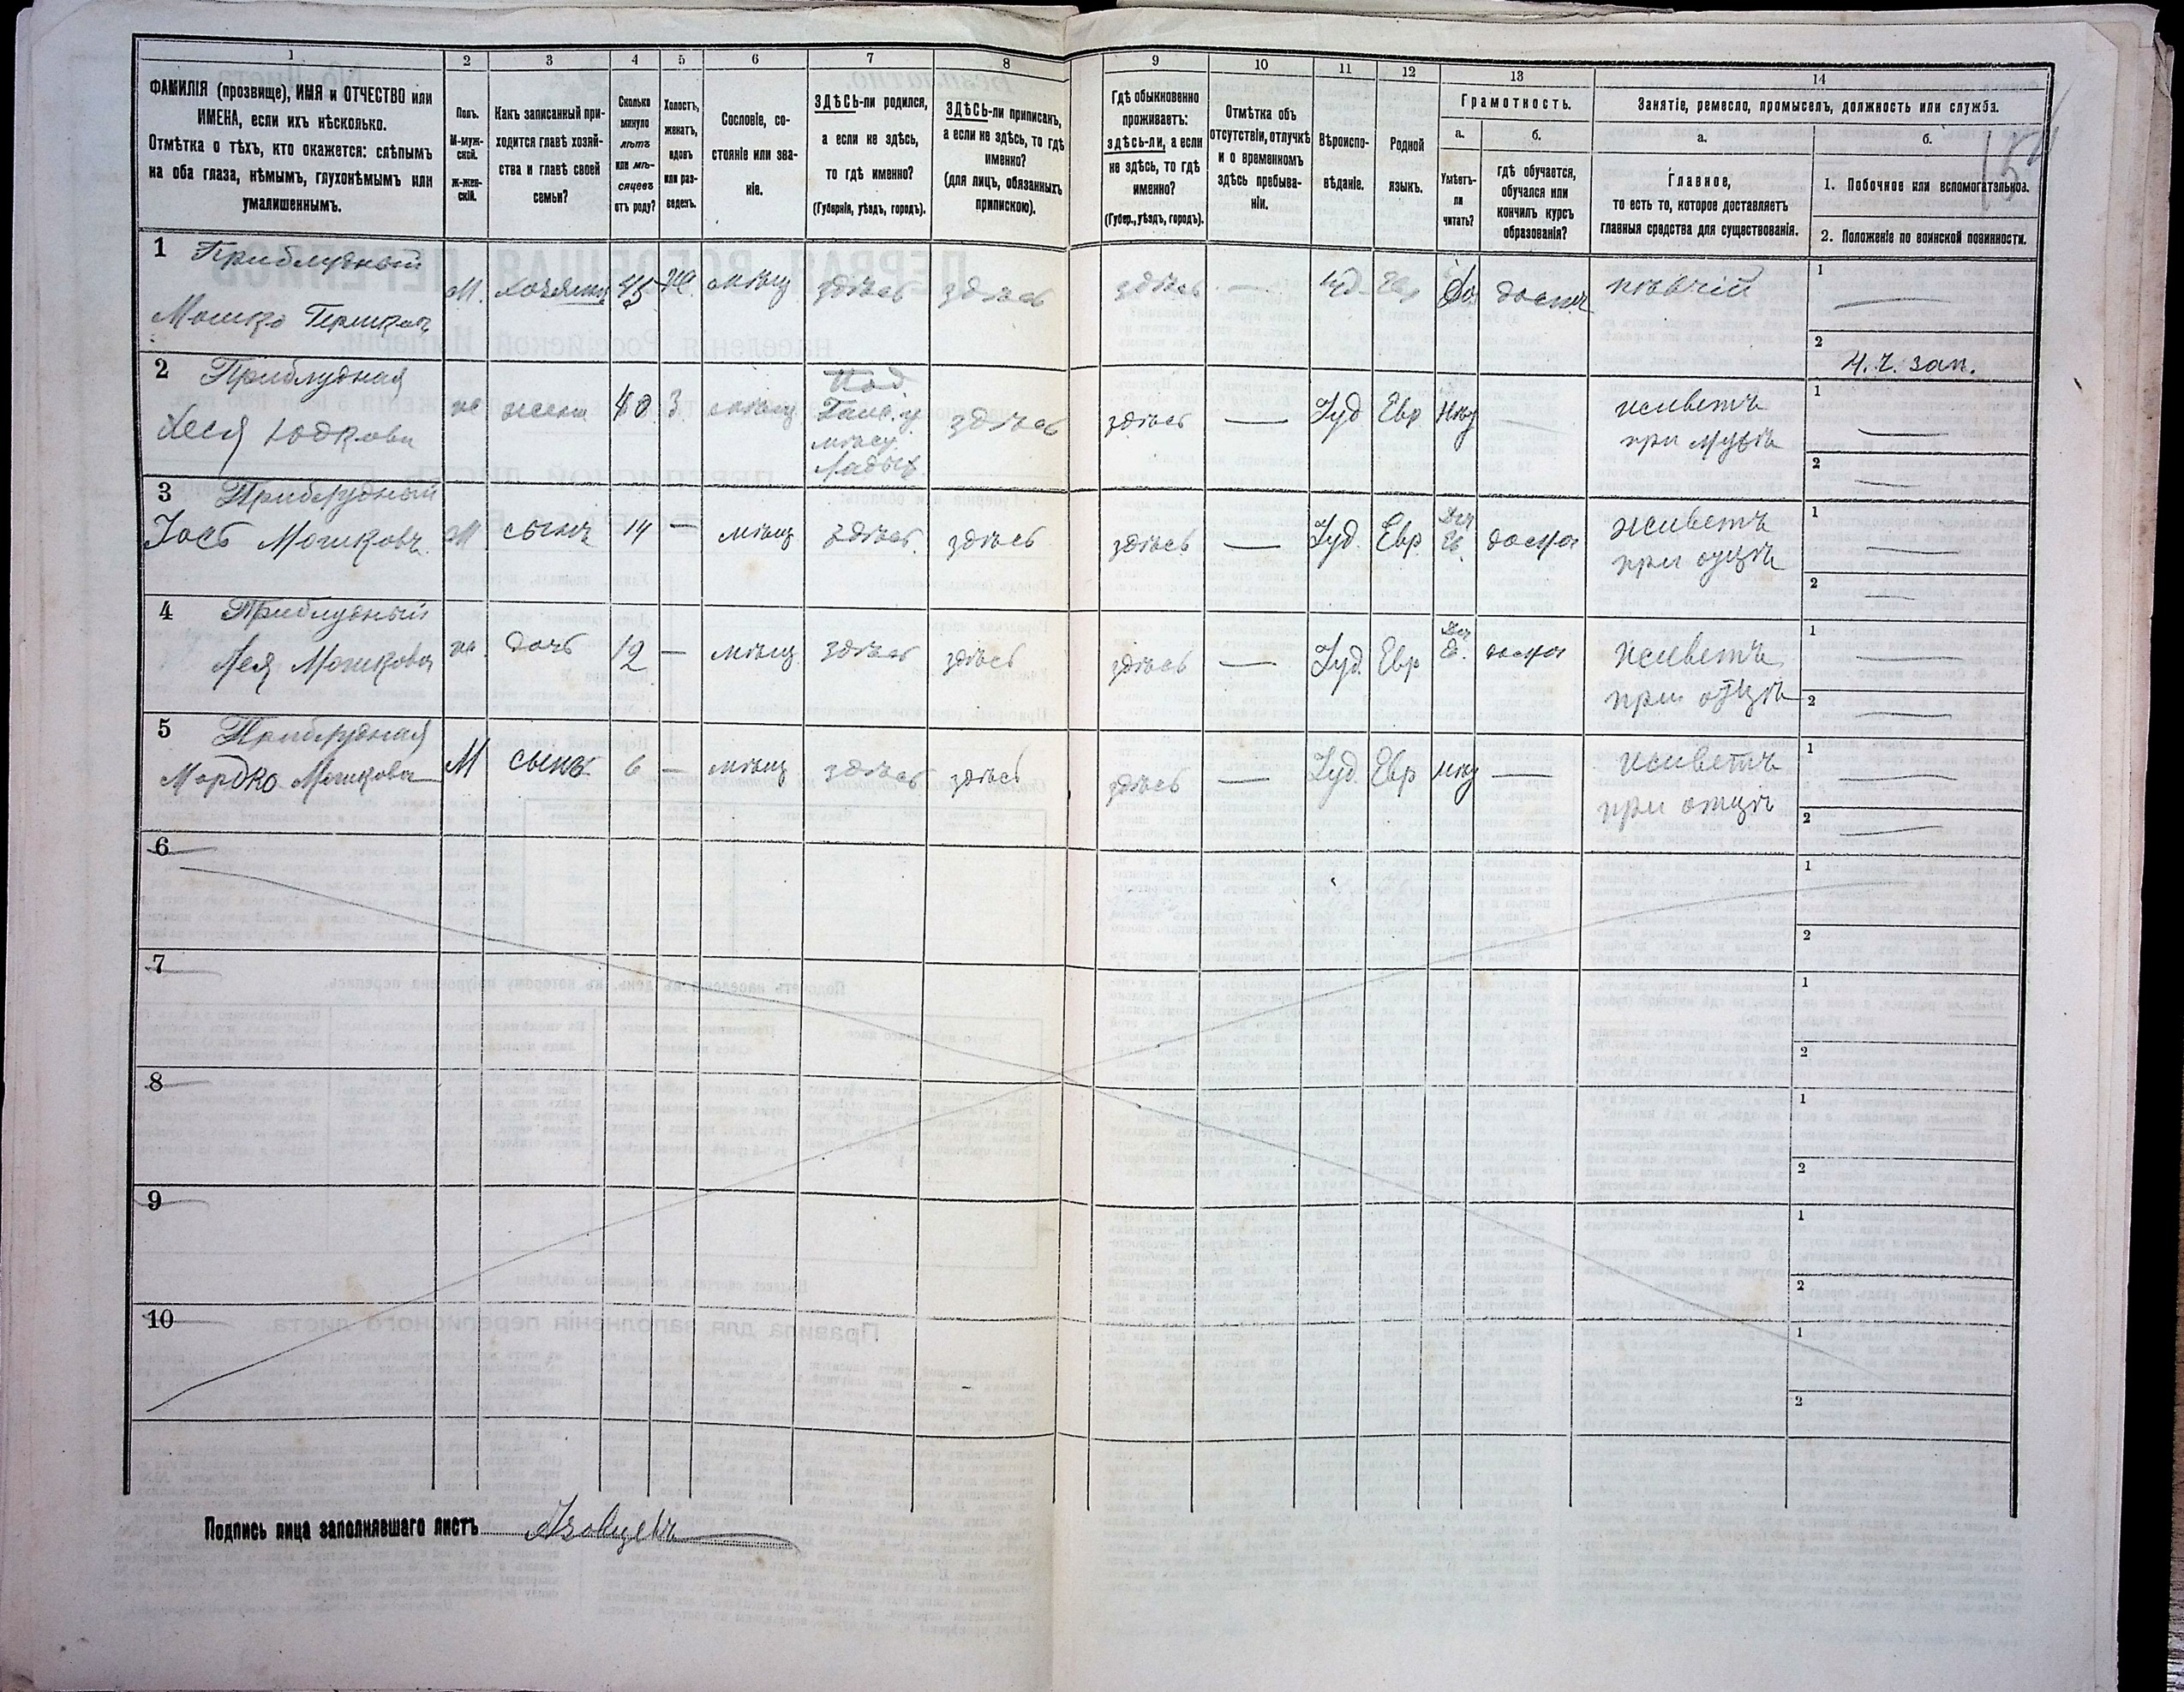 1
2
3
4
5
6
7
8
9
10
11
12
13
14
ФАМИЛІЯ (прозвище), ИМЯ и ОТЧЕСТВО или
ИМЕНА, если ихъ нѣсколько.
Отмѣтка о тѣхъ, кто окажется: слѣпымъ
на оба глаза, нѣмымъ, глухонѣмымъ или
умалишеннымъ.
Полъ.
М-муж-
ской.
Ж-жен-
скій.
Какъ записанный при-
ходится главѣ хозяй-
ства и главѣ своей
семьи?
Сколько
минуло
лѣтъ
или мѣ-
сяцевъ
отъ роду?
Холостъ,
женатъ,
вдовъ
или раз-
веденъ.
Сословіе, со-
стояніе или зва-
ніе.
ЗДѢСЬ-ли родился,
а если не здѣсь,
то гдѣ именно?
(Губернія, уѣздъ, городъ).
ЗДѢСЬ-ли приписанъ,
а если не здѣсь, то гдѣ
именно?
(для лицъ, обязанныхъ
припискою).
Гдѣ обыкновенно
проживаетъ:
здѣсь-ли, а если
не здѣсь, то гдѣ
именно?
(Губер., уѣздъ, городъ).
Отмѣтка объ
отсутствіи, отлучкѣ
и о временномъ
здѣсь пребыва-
ніи.
Вѣроиспо-
вѣданіе.
Родной
языкъ.
Грамотность.
а.
Умѣетъ-
ли
читать?
б.
гдѣ обучается,
обучался или
кончилъ курсъ
образованія?
Занятіе, ремесло, промыселъ, должность или служба.
а.
Главное,
то есть то, которое доставляетъ
главныя средства для существованія.
б.
1. Побочное или вспомогательное.
2. Положеніе по воинской повинности.
1 Приблудный
Мошко
М. 45 здѣсь здѣсь здѣсь —
1 —
2
2 Приблудная
Хеся Юдкова
жена 40 З. здѣсь здѣсь — Іуд Евр
живетъ
при мужѣ
1 —
2 —
3 Приблудный
Іось Мошковъ
М сынъ 14 — мѣщ здѣсь. здѣсь здѣсь — Іуд. Евр
живетъ
при отцѣ
1 —
2 —
4 Приблудный
Лея Мошкова
дочь 12 — мѣщ здѣсь здѣсь здѣсь — Іуд. Евр
живетъ
при отцѣ
1 —
2 —
5 Приблудная
Мордко Мошкова
М сынъ 6 — мѣщ здѣсь здѣсь здѣсь — Іуд. Евр —
живетъ
при отцѣ
1 —
2 —
6
1
2
7
1
2
8
1
2
9
1
2
10
1
2
Подпись лица заполнявшаго листъ